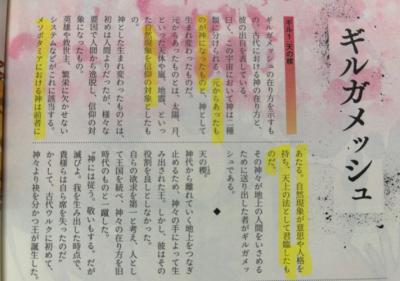 ギルガメッシュ
ギル！ 天の楔
ギルガメッシュの在り方を示すも
の。古代における神の在り方と、
彼の出自を表している。
曰く、この宇宙において神は二種
類に分けられる。元からあったも
のが神になったものと、神として
生まれ変わったものだ。
元からあったものとは、太陽、月、
といった天体や嵐、地震、といっ
た自然現象を信仰の対象としたも
の。
神として生まれ変わったものとは、
初めは人間でありつつも、様々な
要因で人間から逸脱し、信仰の対
象になったもの。
英雄や救世主、繁栄に欠かせない
システムなどがこれに該当する。
メソポタミアにおける神は前者に
あたる。自然現象が意思や人格を
持ち、天上の法として君臨したも
のだ。
その神々が地上の人間をいさめる
ために送り出した者がギルガメッ
シュである。
◆
天の楔。
神代から離れていく地上をつなぎ
止めるため、神々の手によって生
み出された王。しかし、彼はその
役割を良しとしなかった。
自らの欲求を第一と考え、人とし
て王国を統べ、神々の在り方を旧
時代のものと一蹴した。
「神には従う。敬いもする。だが
滅びよ。我を生み出した時点で、
貴様らは自ら席を失ったのだ」
かくして、古代ウルクに初めて、
神々より袂を分かつ王が誕生した。